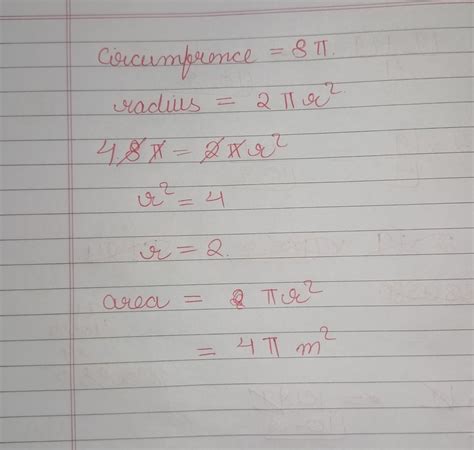 Circumfrence = 8π.
radius = 2πr²
4 8π = 2πr²
r² = 4
r = 2.
area = πr²
= 4π m²